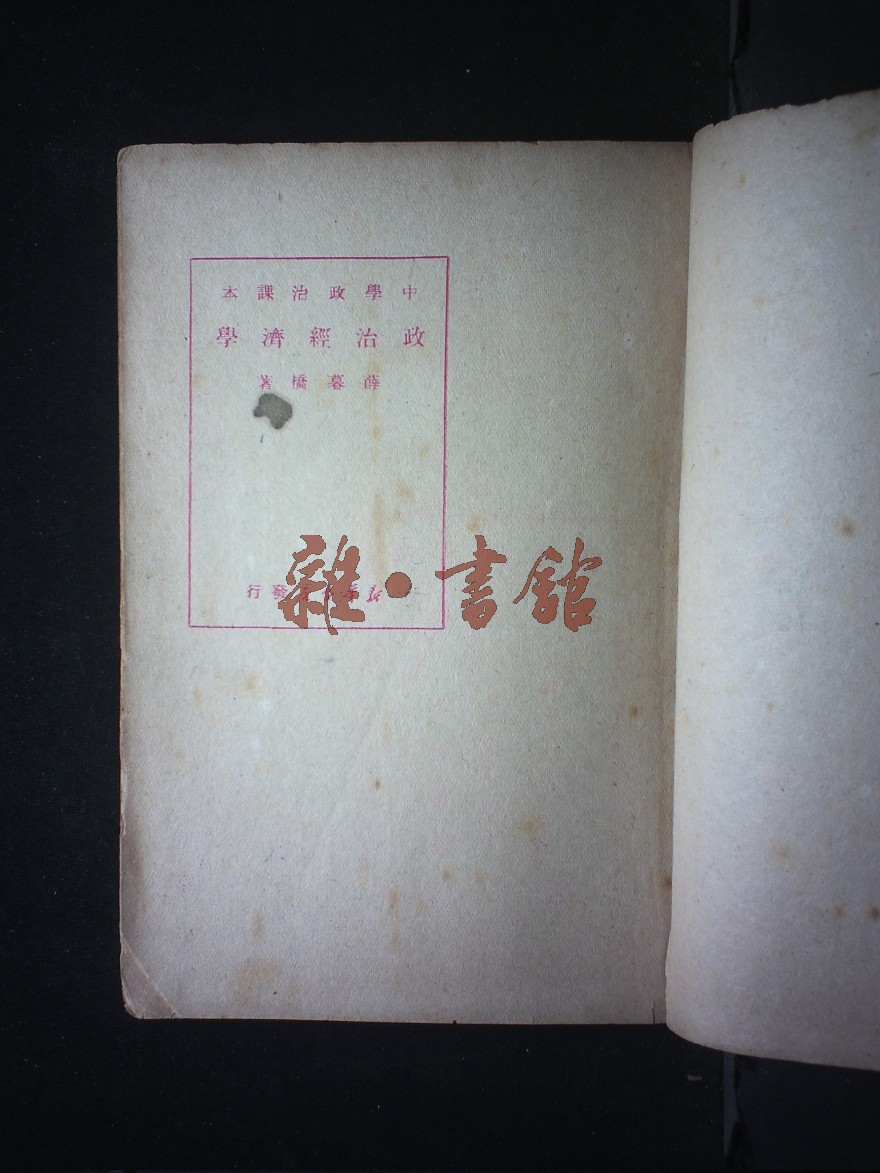 中學政治課本
政治經濟學
薛暮橋著
新華書店發行
雜·書館